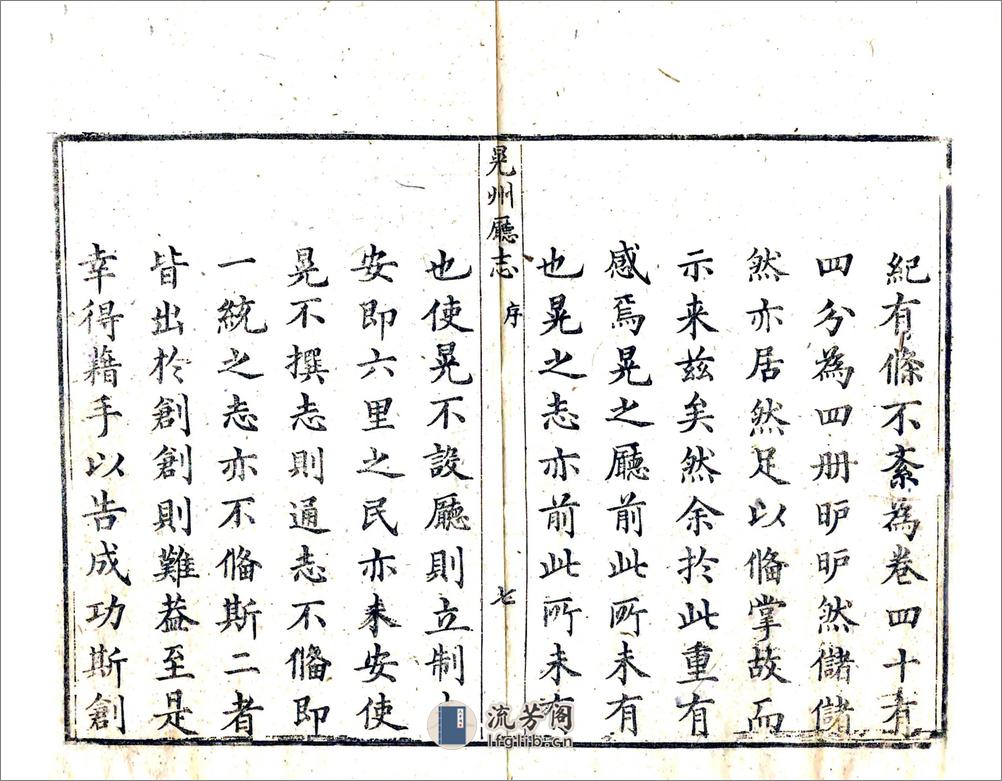 紀有條不紊為卷四十有
四分為四册昈昈然儲儲
然亦居然足以俻掌故而
示来兹矣然余扵此重有
感焉晃之廳前此所未有
也晃之志亦前此所未有
晃州廳志
序
七
也使晃不設廳則立制
安即六里之民亦未安使
晃不撰志則通志不俻即
一統之志亦不俻斯二者
皆出扵創創則難葢至是
幸得藉手以告成功斯創
流芳阁
lfglib.cn